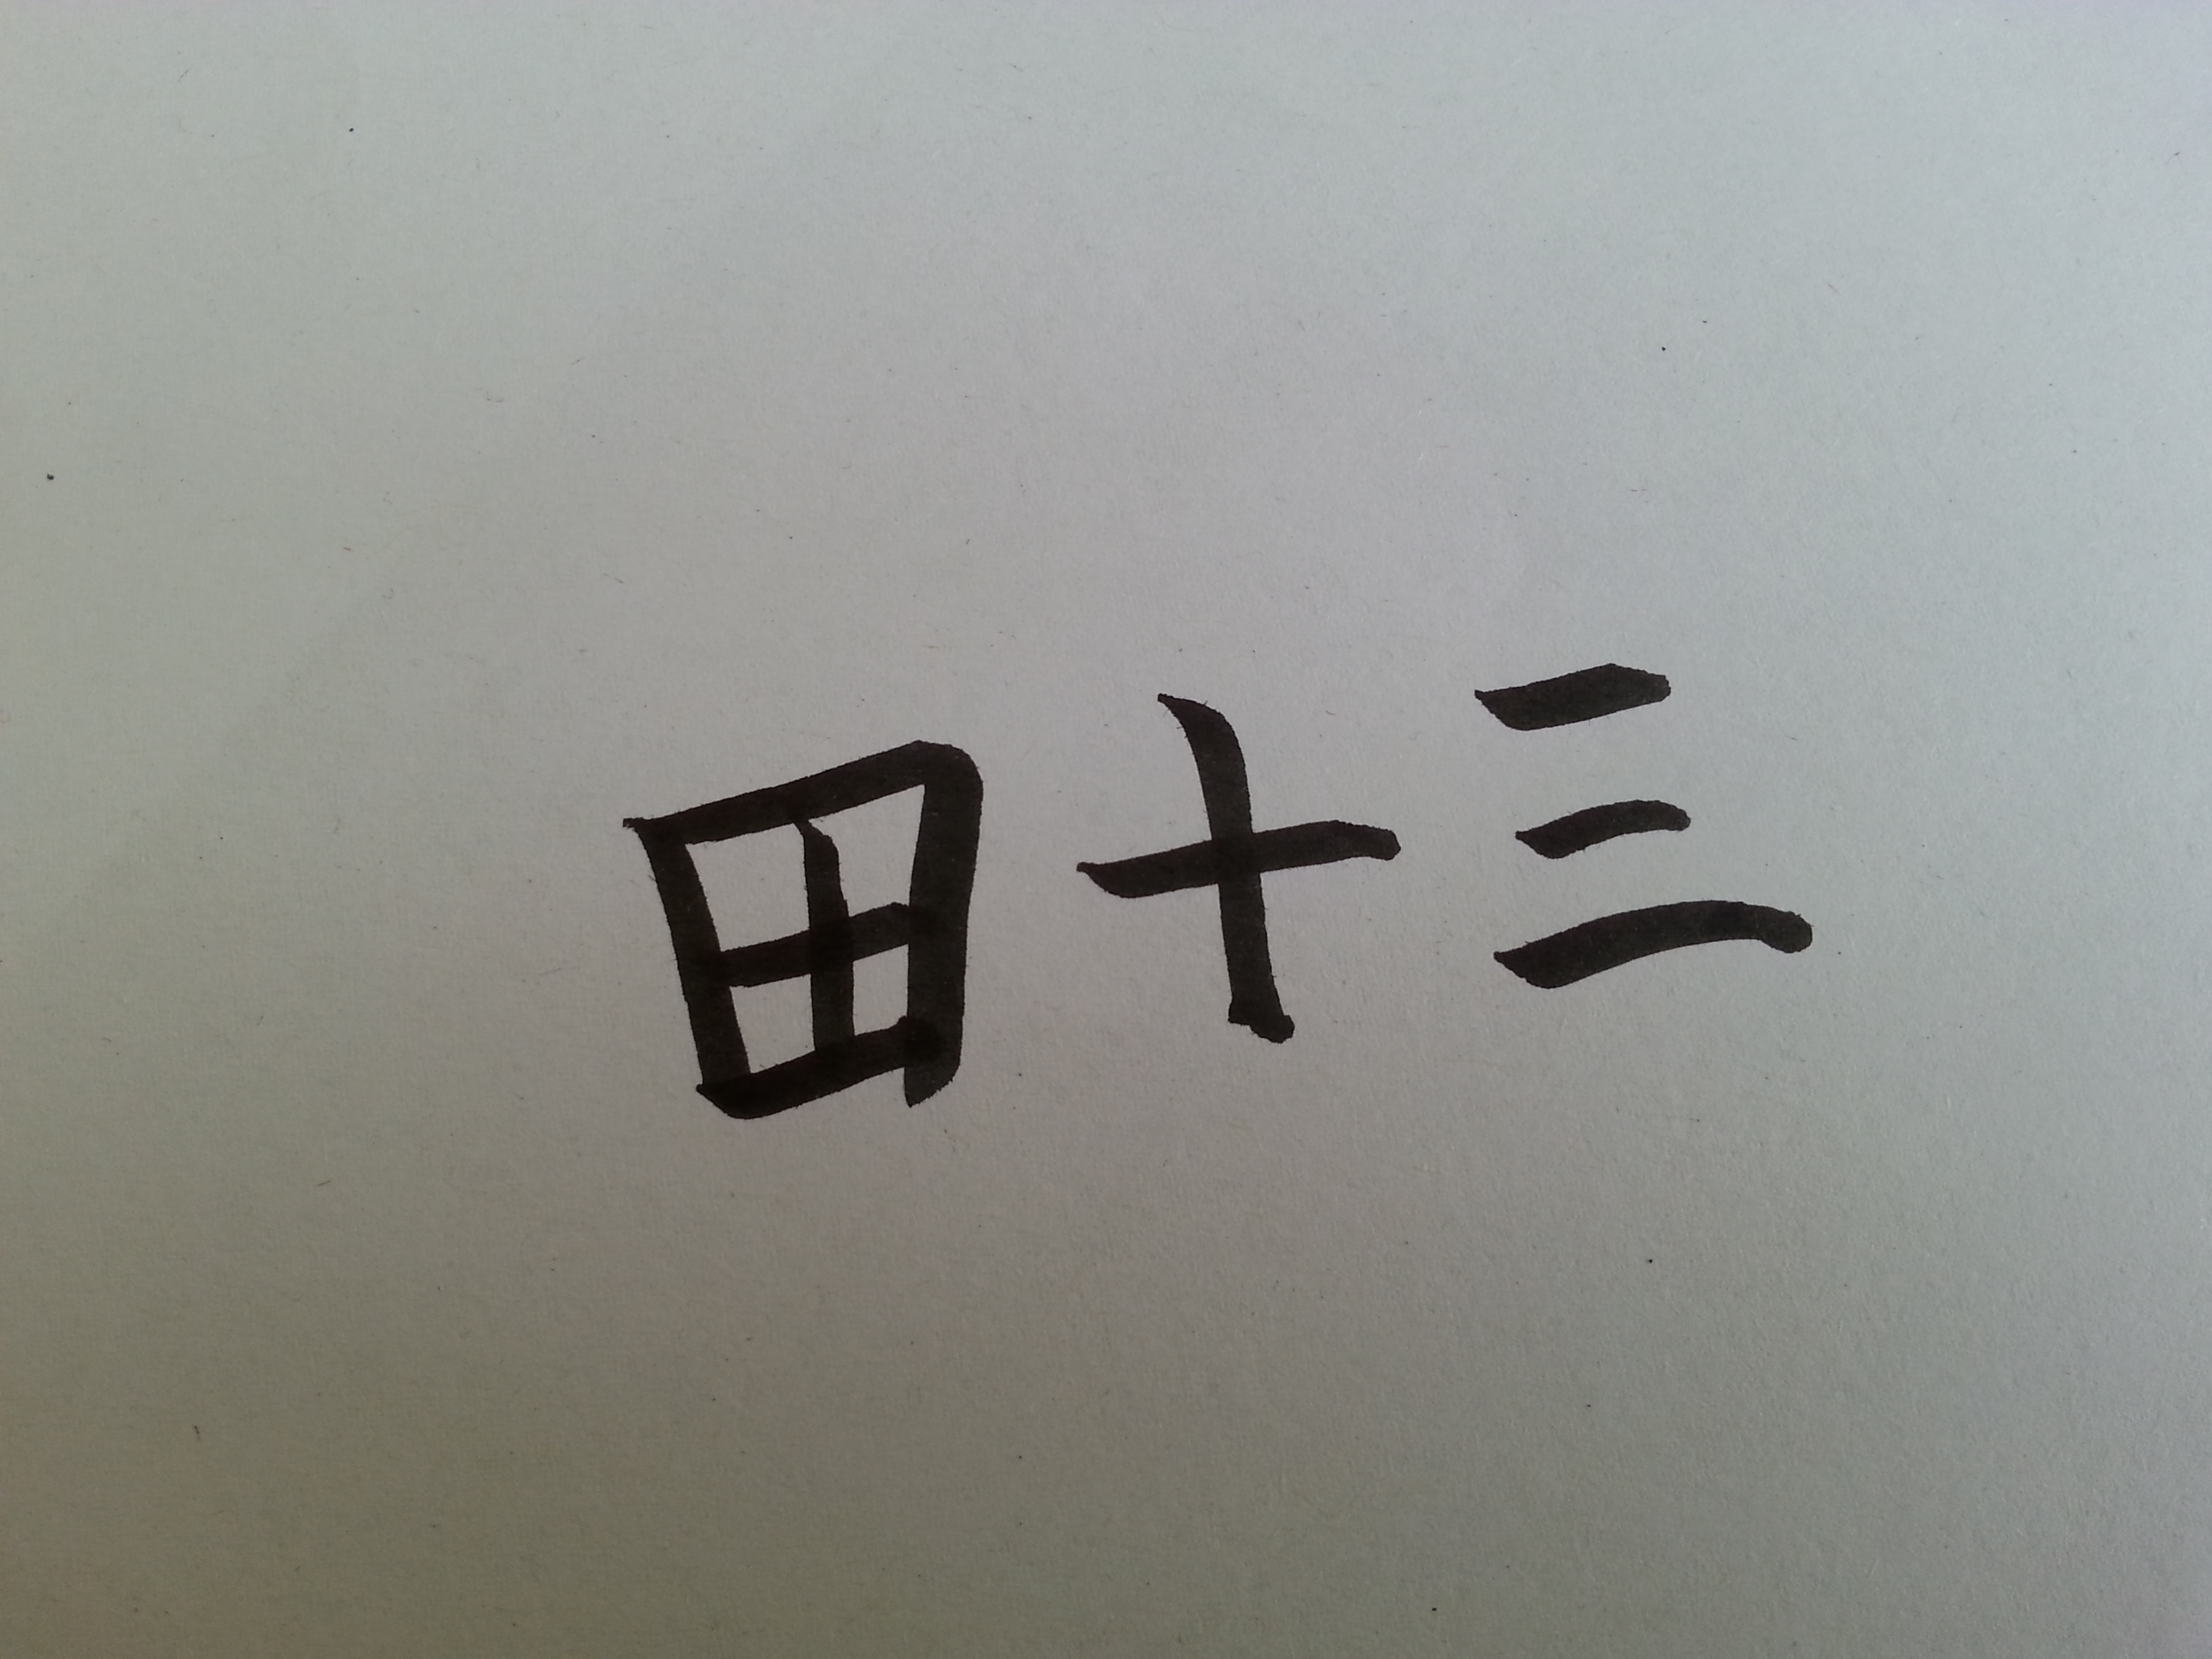 田十三